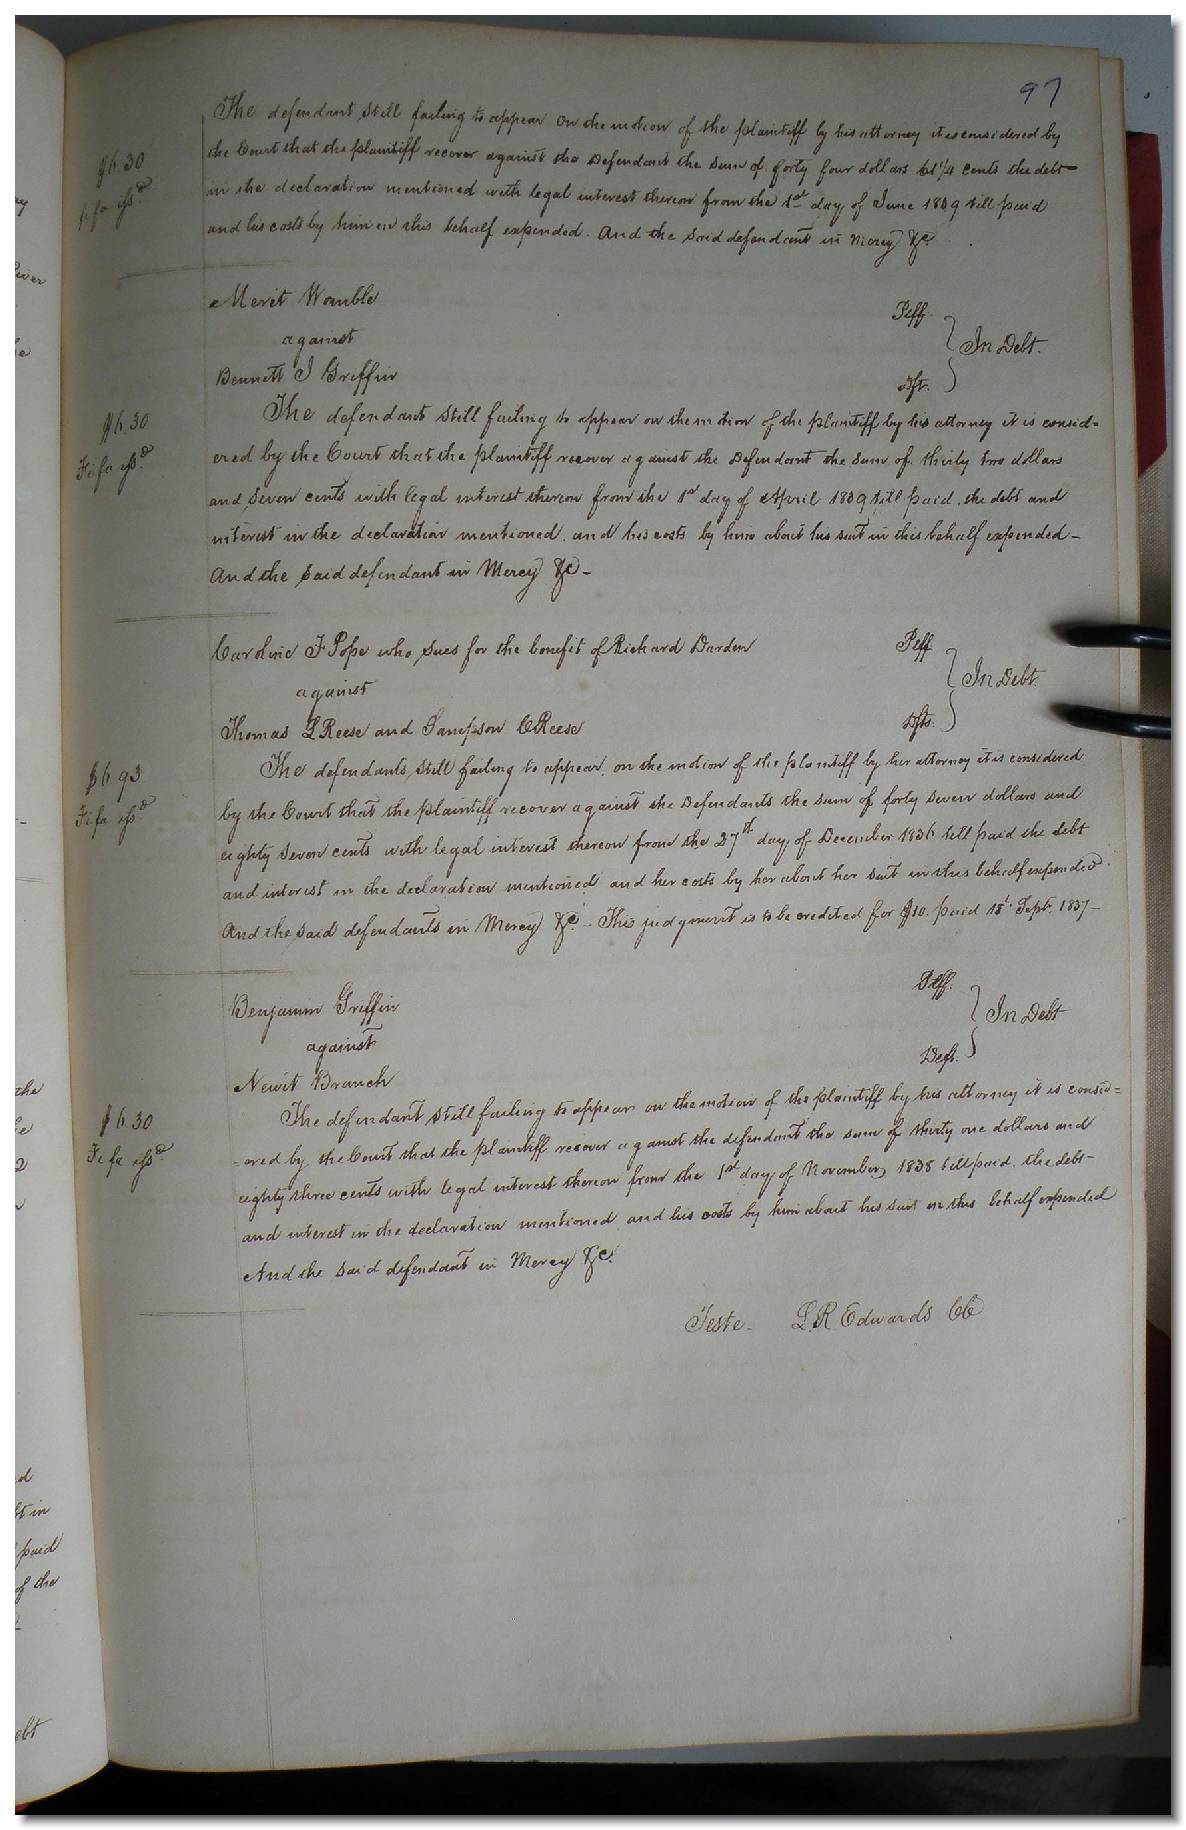 97
The defendant still failing to appear on the motion of the plaintiff by his attorney it is considered by
$6.30
the Court that the plaintiff recover against the Defendant the sum of forty four dollars 61 1/4 cents the debt
fi fa issd
in the declaration mentioned with legal interest thereon from the 1st day of June 1839 till paid
and his costs by him in this behalf expended. And the said defendant in Mercy &c.
Merit Womble Plff.
against In Debt.
Bennett J Griffin Dft.
$6.30
The defendant still failing to appear on the motion of the plaintiff by his attorney it is consid=
Fi fa issd
ered by the Court that the plaintiff recover against the Defendant the sum of thirty two dollars
and seven cents with legal interest thereon from the 1st day of April 1839 till paid, the debt and
interest in the declaration mentioned, and his costs by him about his suit in this behalf expended -
And the said defendant in Mercy &c -
Caroline F Pope who sues for the benefit of Richard Darden Plff
against In Debt.
Thomas L Reese and Sampson C Reese Dfts.
$6.93
The defendants still failing to appear, on the motion of the plaintiff by her attorney it is considered
Fi fa issd
by the Court that the plaintiff recover against the Defendants the sum of forty seven dollars and
eighty seven cents with legal interest thereon from the 27th day of December 1836 till paid the debt
and interest in the declaration mentioned and her costs by her about her suit in this behalf expended.
And the said defendants in Mercy &c. - This judgment is to be credited for $10. paid 15t Sept. 1837 -
Benjamin Griffin Plff.
against In Debt
Newit Branch Deft.
$6.30
The defendant still failing to appear on the motion of the plaintiff by his attorney it is consid=
Fi fa issd
=ered by the Court that the plaintiff recover against the defendant the sum of thirty one dollars and
eighty three cents with legal interest thereon from the 1st day of November 1838 till paid, the debt
and interest in the declaration mentioned and his costs by him about his suit in this behalf expended
And the said defendant in Mercy &c.
Teste - L. R Edwards CC